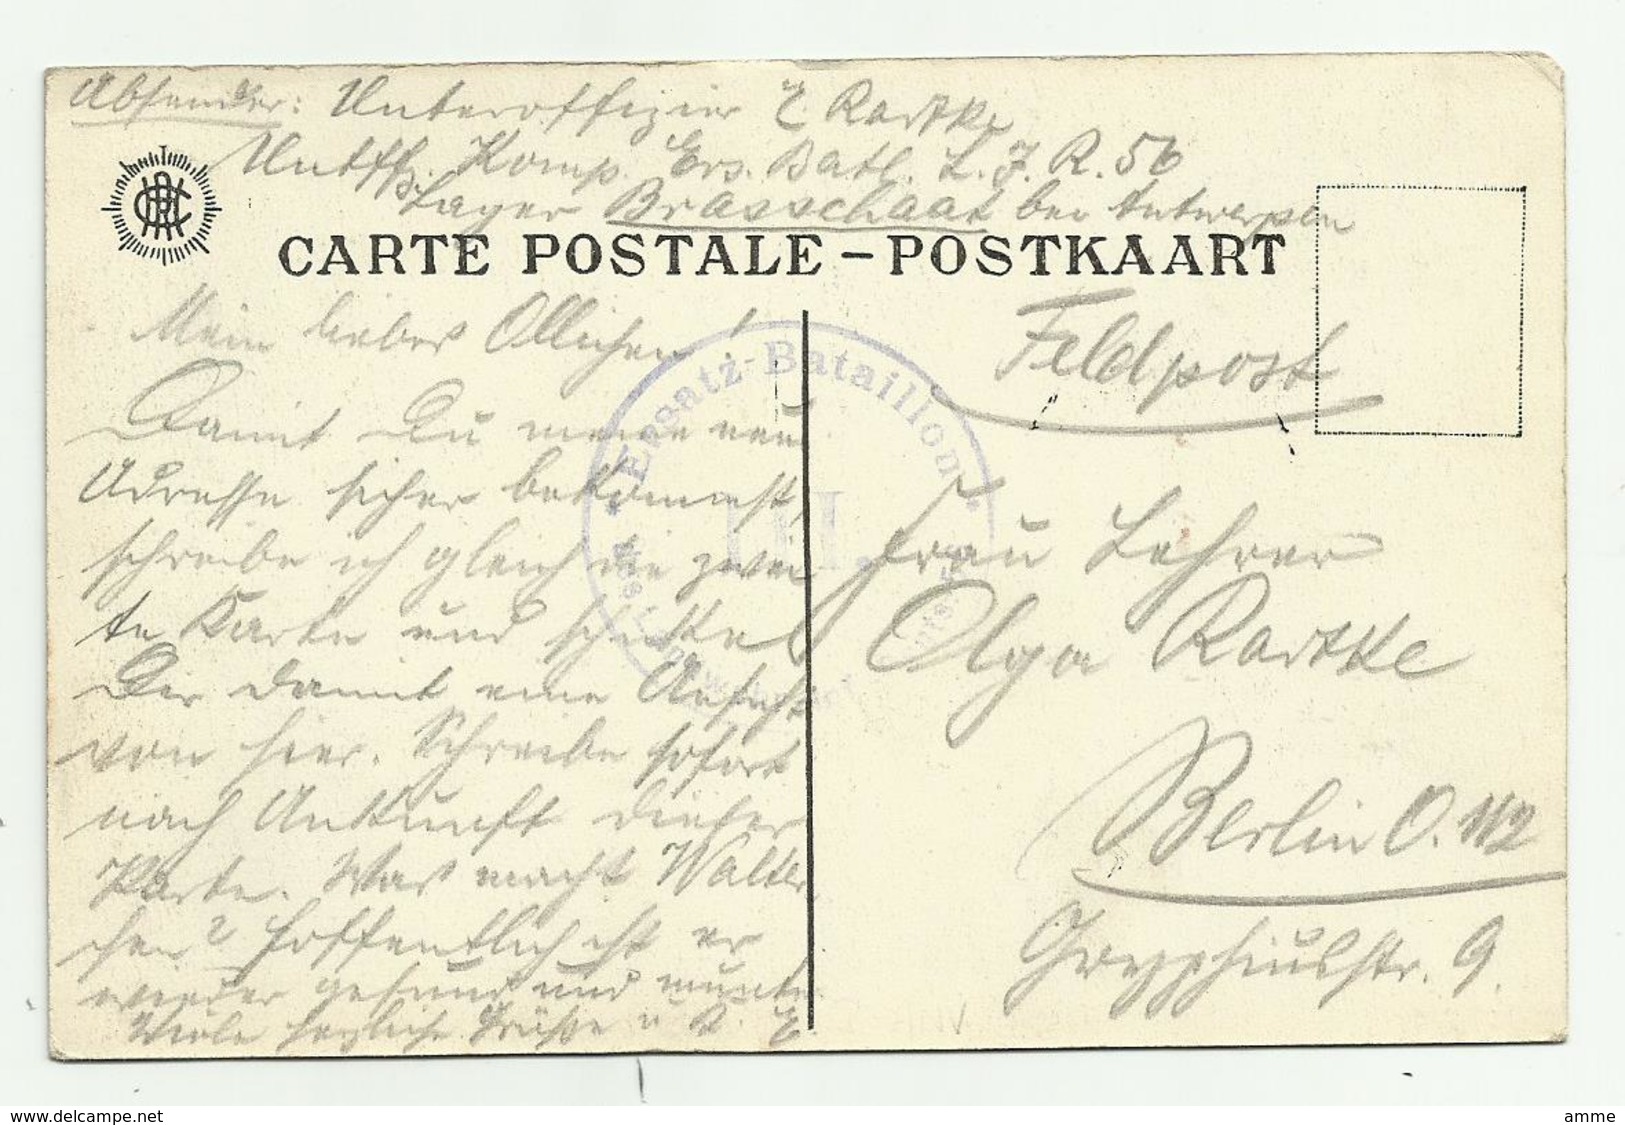 Absender: Unteroffizier E Radtke
Untffz. Komp. Ers. Batl. L. J. R. 56
Lager Brasschaat bei Antwerpen
CARTE POSTALE – POSTKAART
Mein liebes Ollichen!
Damit Du meine neue
Adresse sicher bekommst,
schreibe ich gleich die zwei
te Karte und schicke
Dir damit eine Ansicht
von hier. Schreibe sofort
nach Ankunft dieser
Karte. Was macht Walter
chen? Hoffentlich ist er
wieder gesund und munter
Viele herzliche Grüße u. K. E.
Ersatz-Bataillon
III.
Feldpost
Frau Lehrer
Olga Radtke
Berlin O. 112
Gryphiusstr. 9.
http://www.delcampe.net
amme